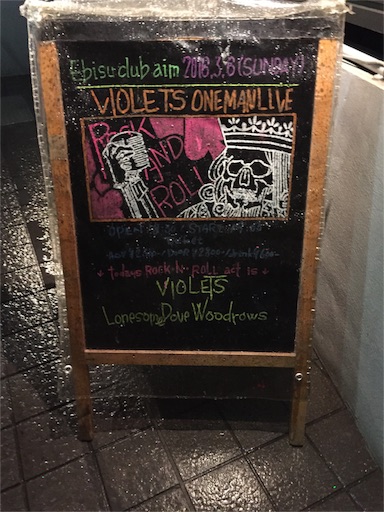 Ebisu club aim 2018.3.8 (SUNDAY)
VIOLETS ONEMAN LIVE
ROCK
AND
ROLL
todays ROCK-N-ROLL act is
VIOLETS
Lonesome Dove Woodrows